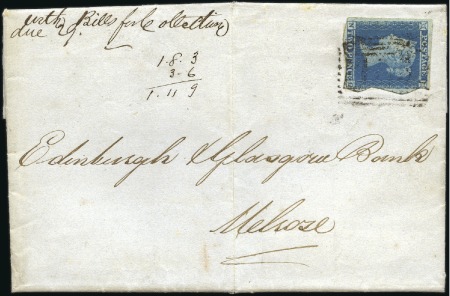 with Bills for Collection
due
1. 8. 3
3-6
1. 11 9
POSTAGE
TWO PENCE
Edinburgh & Glasgow Bank
Melrose